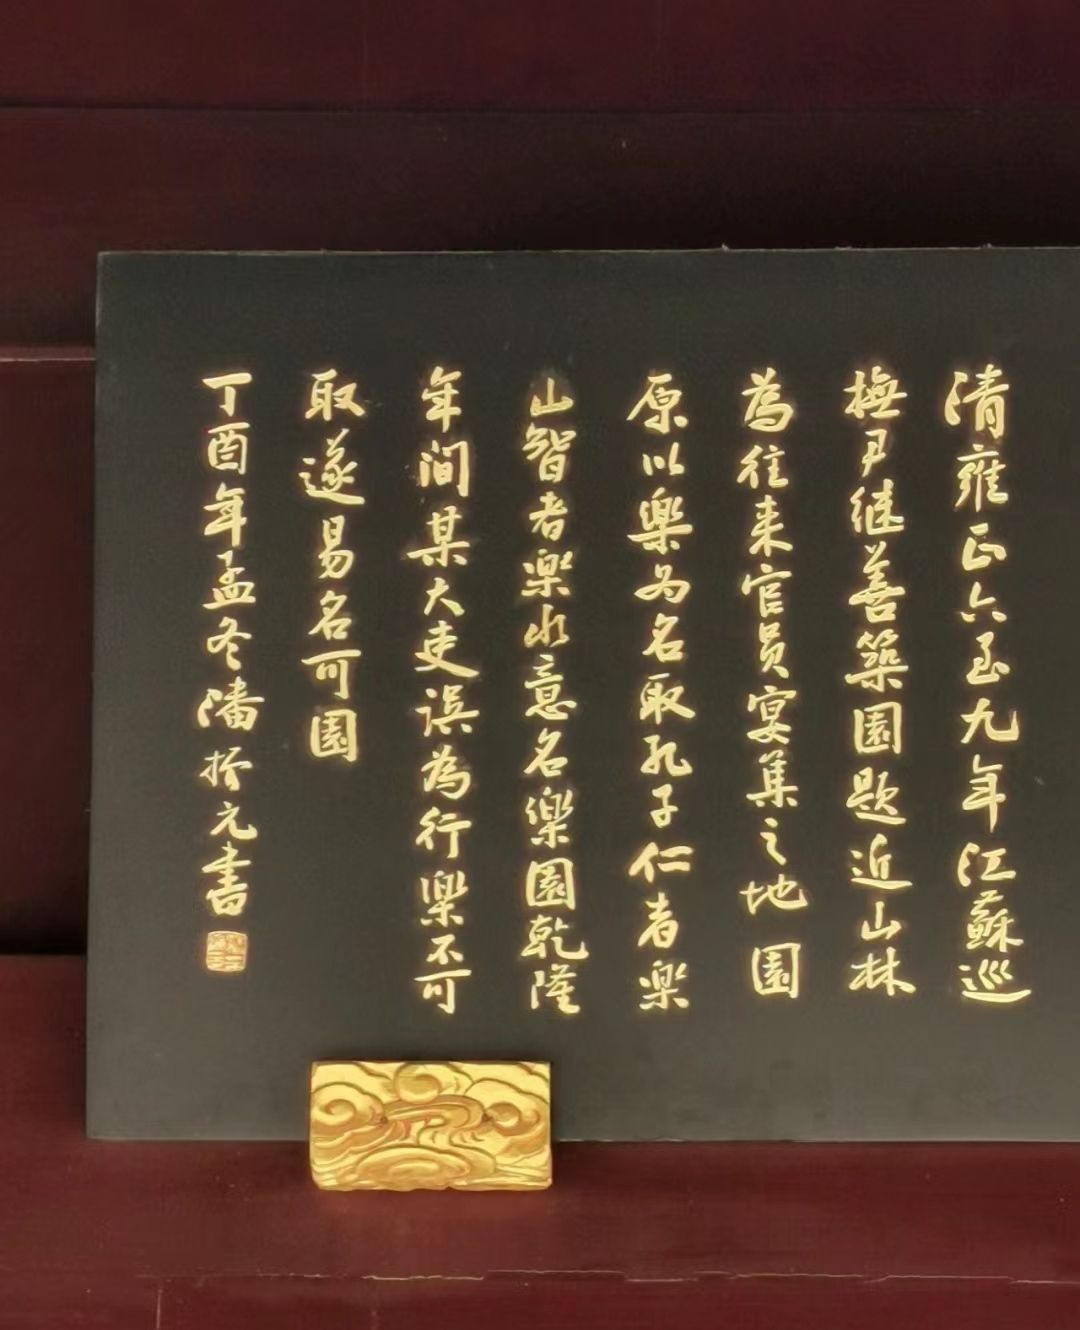 清雍正六至九年江蘇巡
撫尹继善築園题近山林
為往来官员宴集之地園
原以樂为名取孔子仁者楽
山智者楽水意名樂園乾隆
年间某大吏误為行樂不可
取遂易名可園
丁酉年孟冬潘振元書